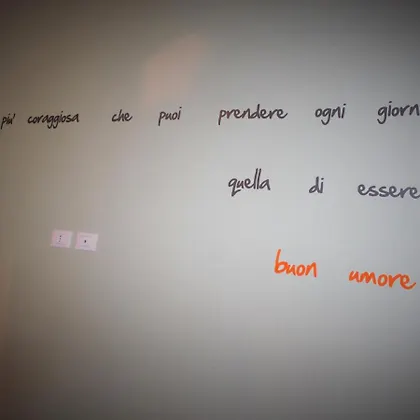 piu' coraggiosa che puoi prendere ogni giorn
quella di essere
buon umore